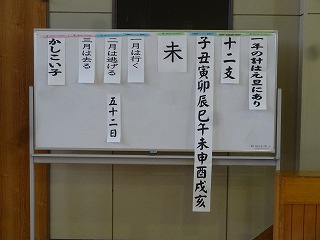 一年の計は元旦にあり
十二支
子丑寅卯辰巳午未申酉戌亥
未
一月は行く
二月は逃げる
五十二日
三月は去る
かしこい子